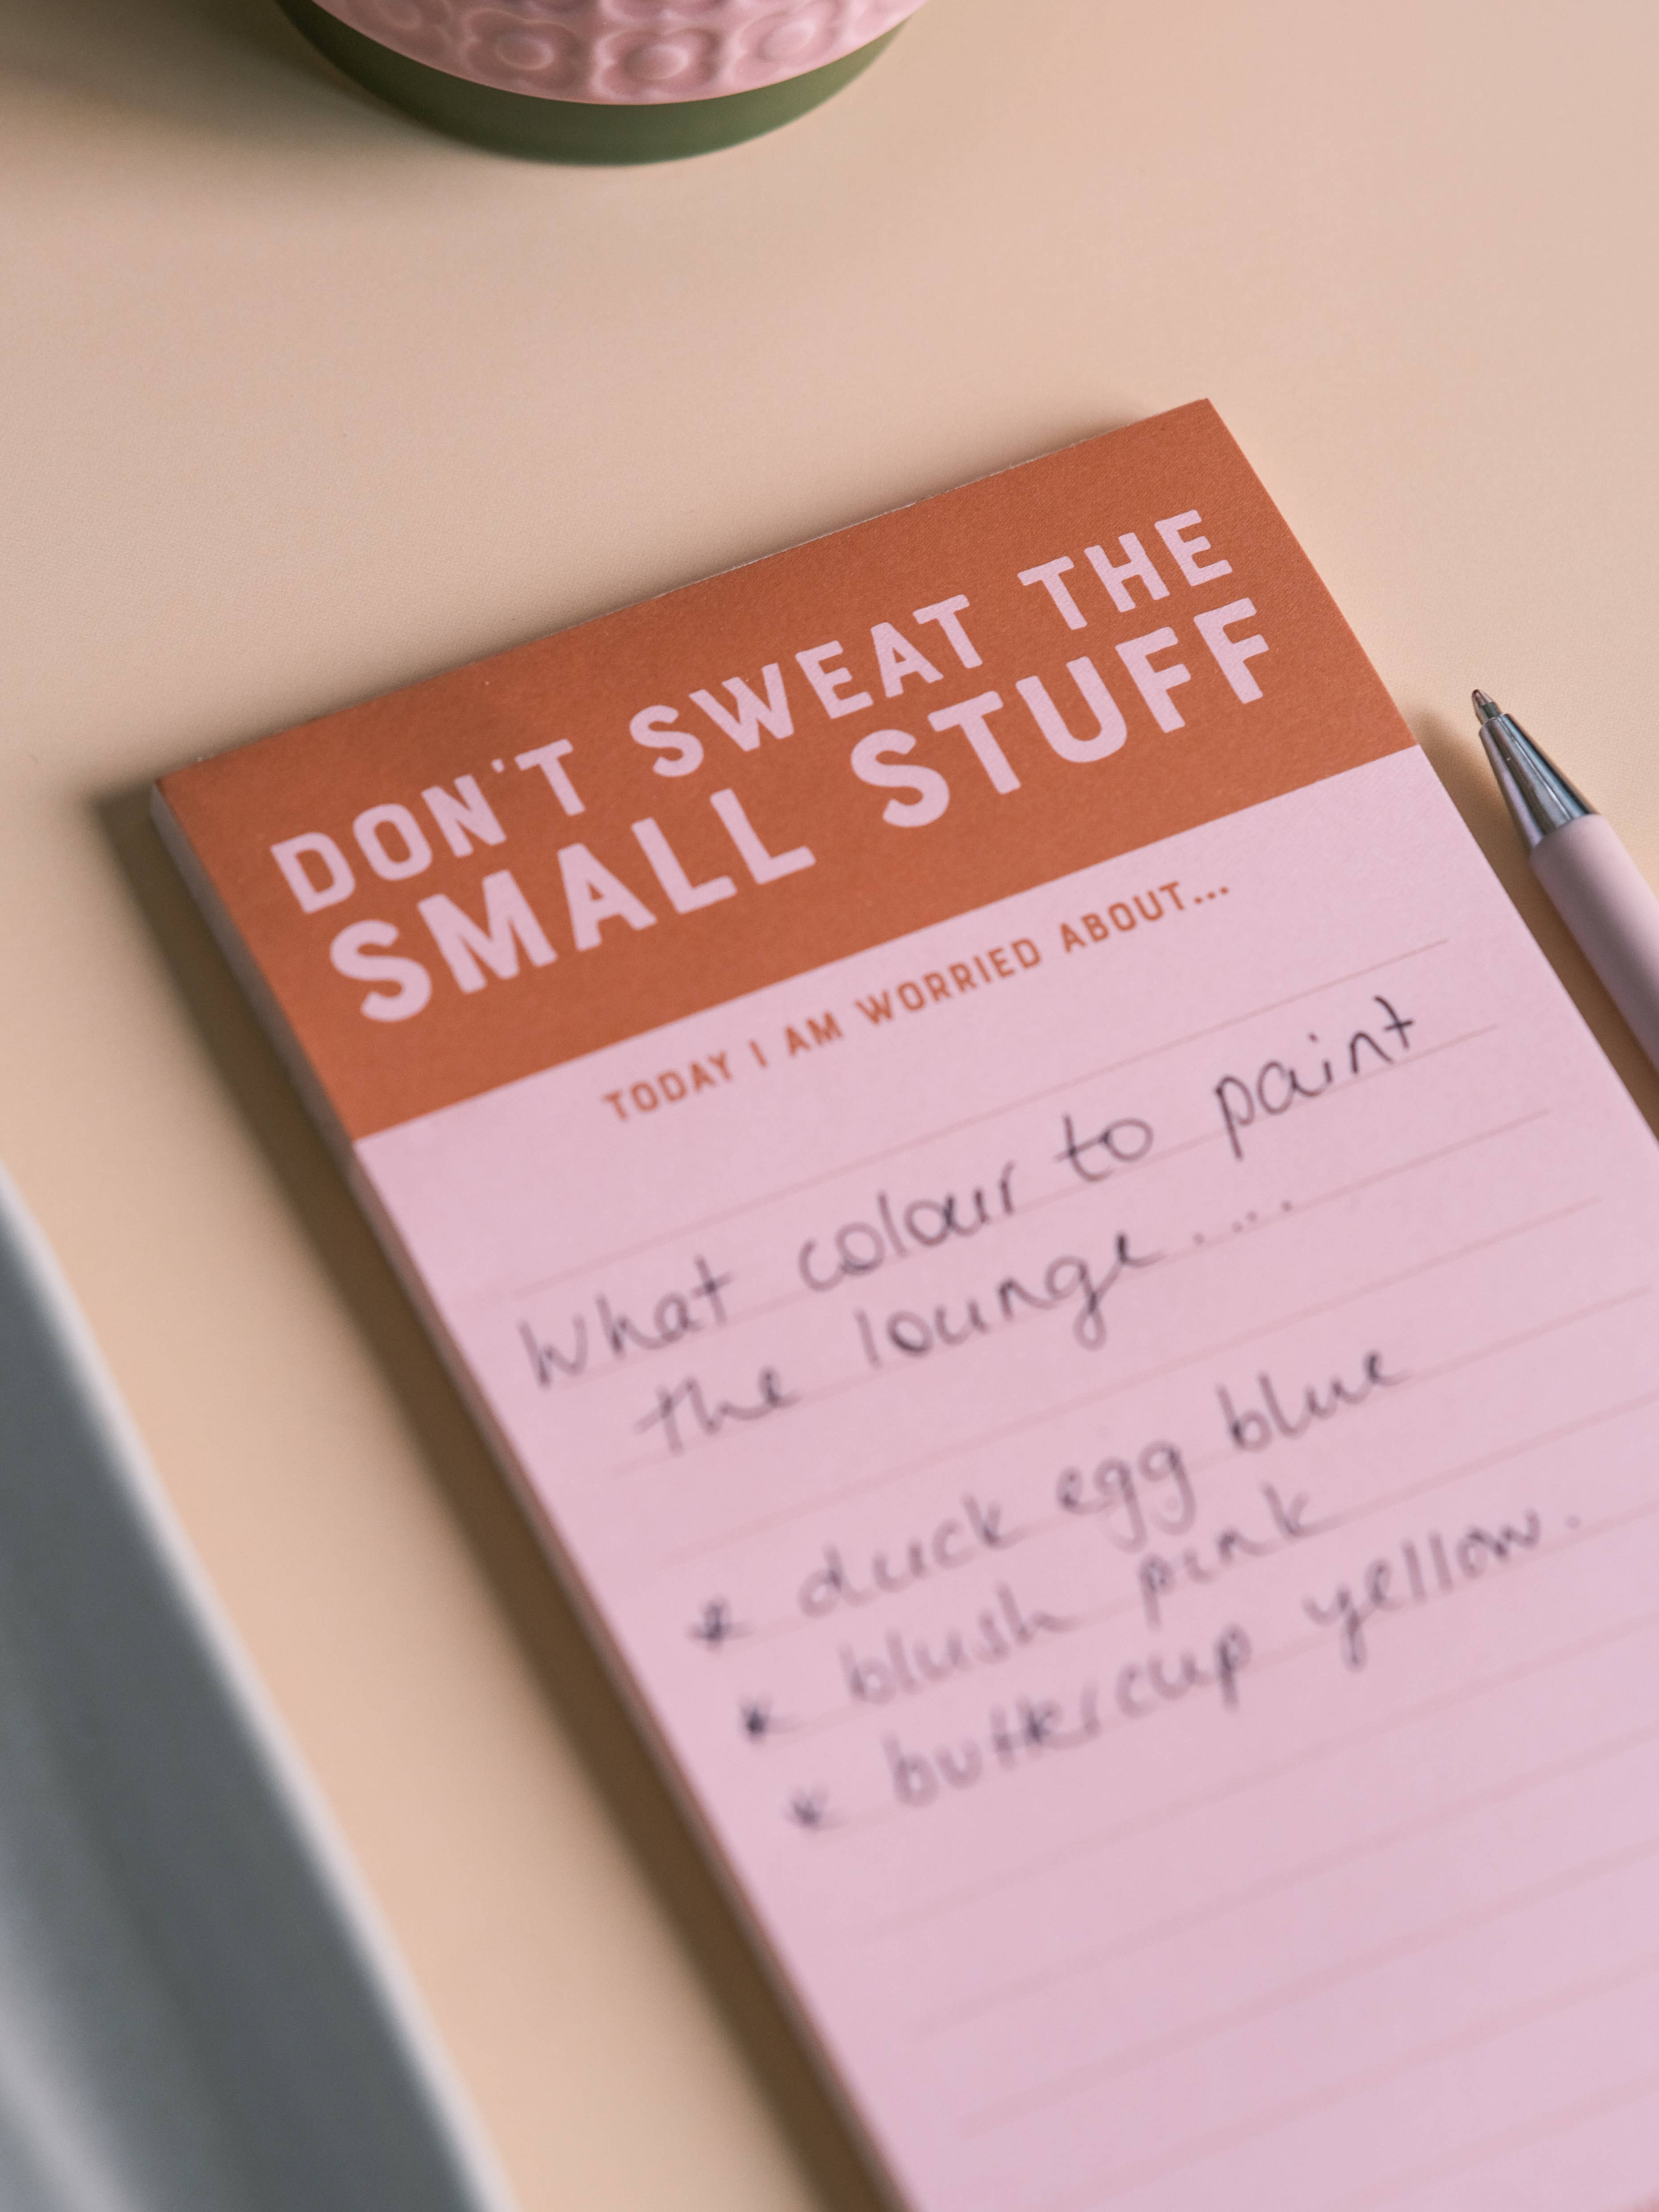 DON'T SWEAT THE
SMALL STUFF
TODAY I AM WORRIED ABOUT...
What colour to paint
the lounge....
* duck egg blue
* blush pink
* buttercup yellow.